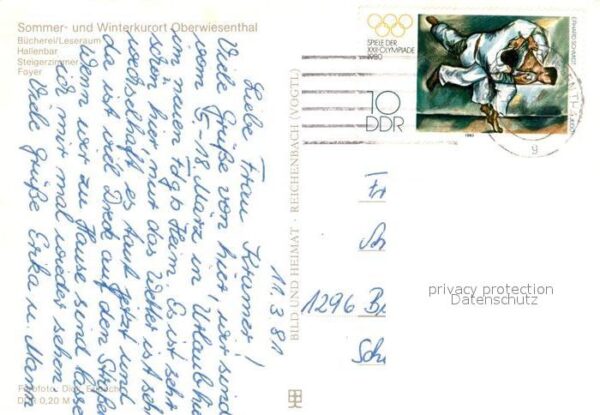 Sommer- und Winterkurort Oberwiesenthal
Bücherei/Leseraum
Hallenbar
Steigerzimmer
Foyer
SPIELE DER
XXII. OLYMPIADE
1980
10
DDR
1980
11.3.81
Liebe Frau Krämer!
Viele Grüße von hier, wir sind
vom 5-18. März in Urlaub
im neuen Fdgb Heim. Es ist sehr
schön hier, nur das Wetter ist sehr
wechselhaft, es taut jetzt und
da ist viel Dreck auf den Straßen
Wenn wir zu Hause sind lassen
wir mal wieder sehen.
Viele Grüße Erika u. Mann
BILD UND HEIMAT · REICHENBACH (VOGTL)
1296 B
Sch
privacy protection
Datenschutz
DDR 0,20 M